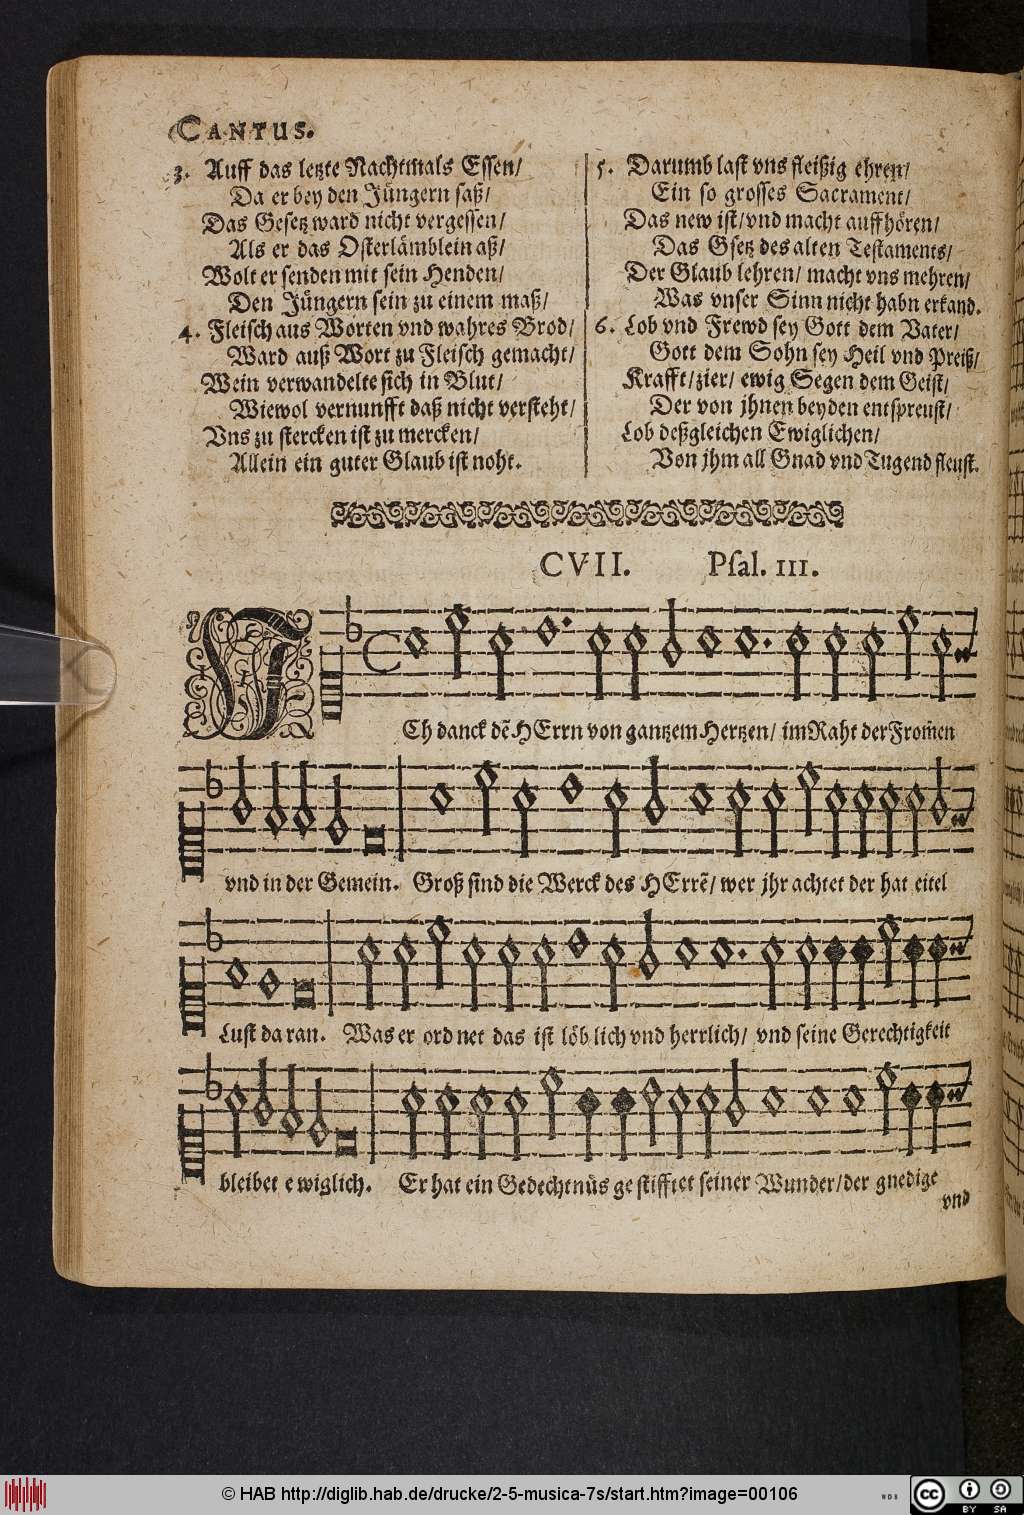 CANTUS.
3. Auff das letzte Nachtmals Essen/
Da er bey den Jüngern saß/
Das Gesetz ward nicht vergessen/
Als er das Osterlämblein aß/
Wolt er senden mit sein Henden/
Den Jüngern sein zu einem maß/
4. Fleisch aus Worten vnd wahres Brod/
Ward auß Wort zu Fleisch gemacht/
Wein verwandelte sich in Blut/
Wiewol vernunfft daß nicht versteht/
Vns zu stercken ist zu mercken/
Allein ein guter Glaub ist noht.
5. Darumb last vns fleißig ehren/
Ein so grosses Sacrament/
Das new ist/vnd macht auffhören/
Das Gsetz des alten Testaments/
Der Glaub lehren/ macht vns mehren/
Was vnser Sinn nicht habn erkand.
6. Lob vnd Frewd sey Gott dem Vater/
Gott dem Sohn sey Heil vnd Preiß/
Krafft/zier/ ewig Segen dem Geist/
Der von jhnen beyden entspreust/
Lob deßgleichen Ewiglichen/
Von jhm all Gnad vnd Tugend fleust.
CVII. Psal. III.
ICh danck dẽ HErrn von gantzem Hertzen/ im Raht der From̃en
vnd in der Gemein. Groß sind die Werck des HErrẽ/ wer jhr achtet der hat eitel
Lust da ran. Was er ord net das ist löb lich vnd herrlich/ vnd seine Gerechtigkeit
bleibet e wiglich. Er hat ein Gedechtnüs ge stifftet seiner Wunder/der gnedige
vnd
© HAB http://diglib.hab.de/drucke/2-5-musica-7s/start.htm?image=00106
WDB
cc
BY SA